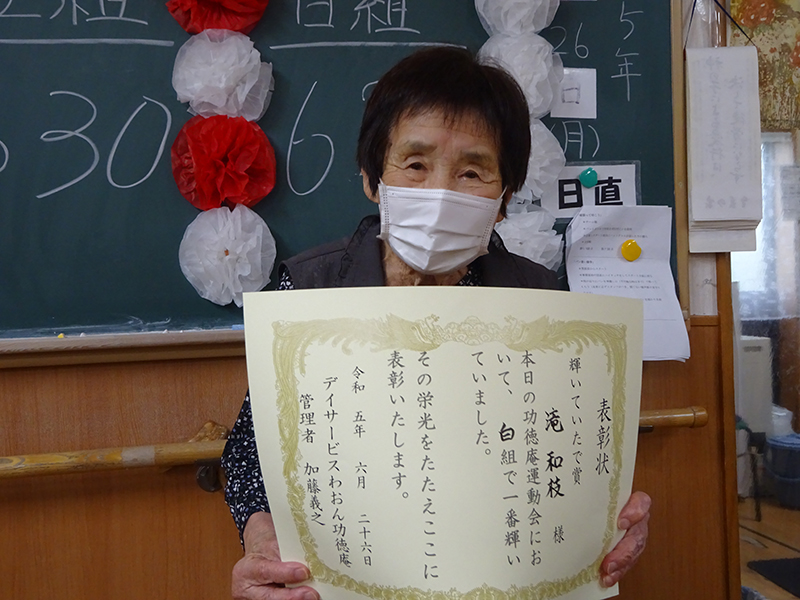 白組
630
6
5年
26
日
(月)
日直
表彰状
輝いていたで賞
滝 和枝 様
本日の功徳庵運動会にお
いて、白組で一番輝い
ていました。
その栄光をたたえここに
表彰いたします。
令和 五年 六月 二十六日
デイサービスわおん功徳庵
管理者 加藤義之